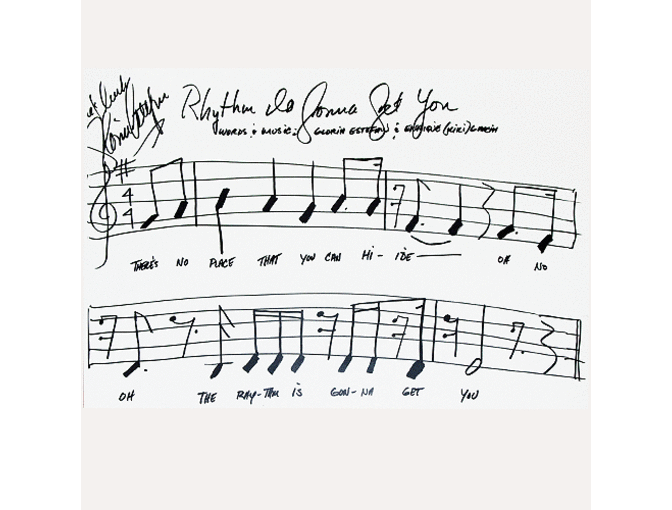 Rhythm Is Gonna Get You
WORDS & MUSIC: GLORIA ESTEFAN & ENRIQUE (KIKI) GARCIA
4
4
THERE'S NO PLACE THAT YOU CAN HI- IDE OH NO
OH THE RHY-THM IS GON-NA GET YOU